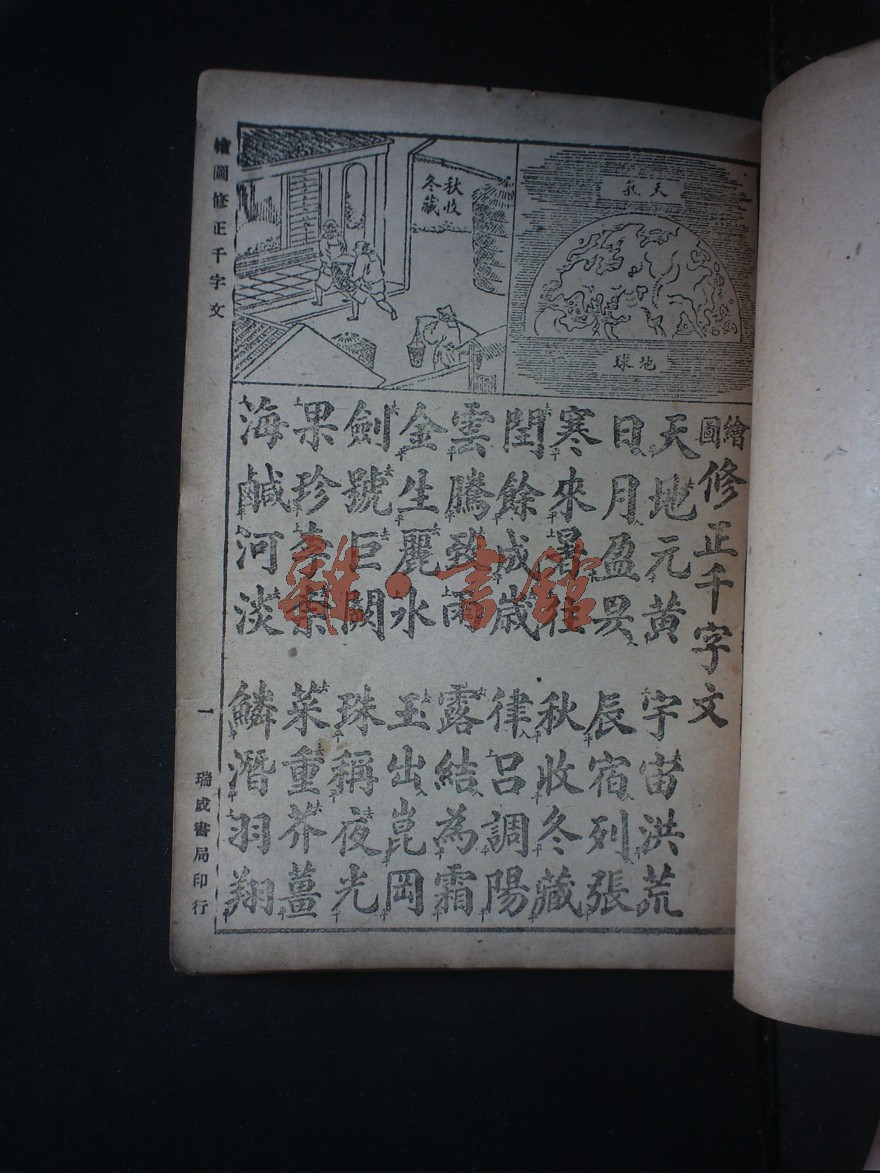 天氣
地球
秋收
冬藏
繪圖修正千字文
天地元黃 宇宙洪荒
日月盈昃 辰宿列張
寒來暑往 秋收冬藏
閏餘成歲 律呂調陽
雲騰致雨 露結為霜
金生麗水 玉出崑岡
劍號巨闕 珠稱夜光
果珍李柰 菜重芥薑
海鹹河淡 鱗潛羽翔
繪圖修正千字文
一
瑞成書局印行
雜·書館